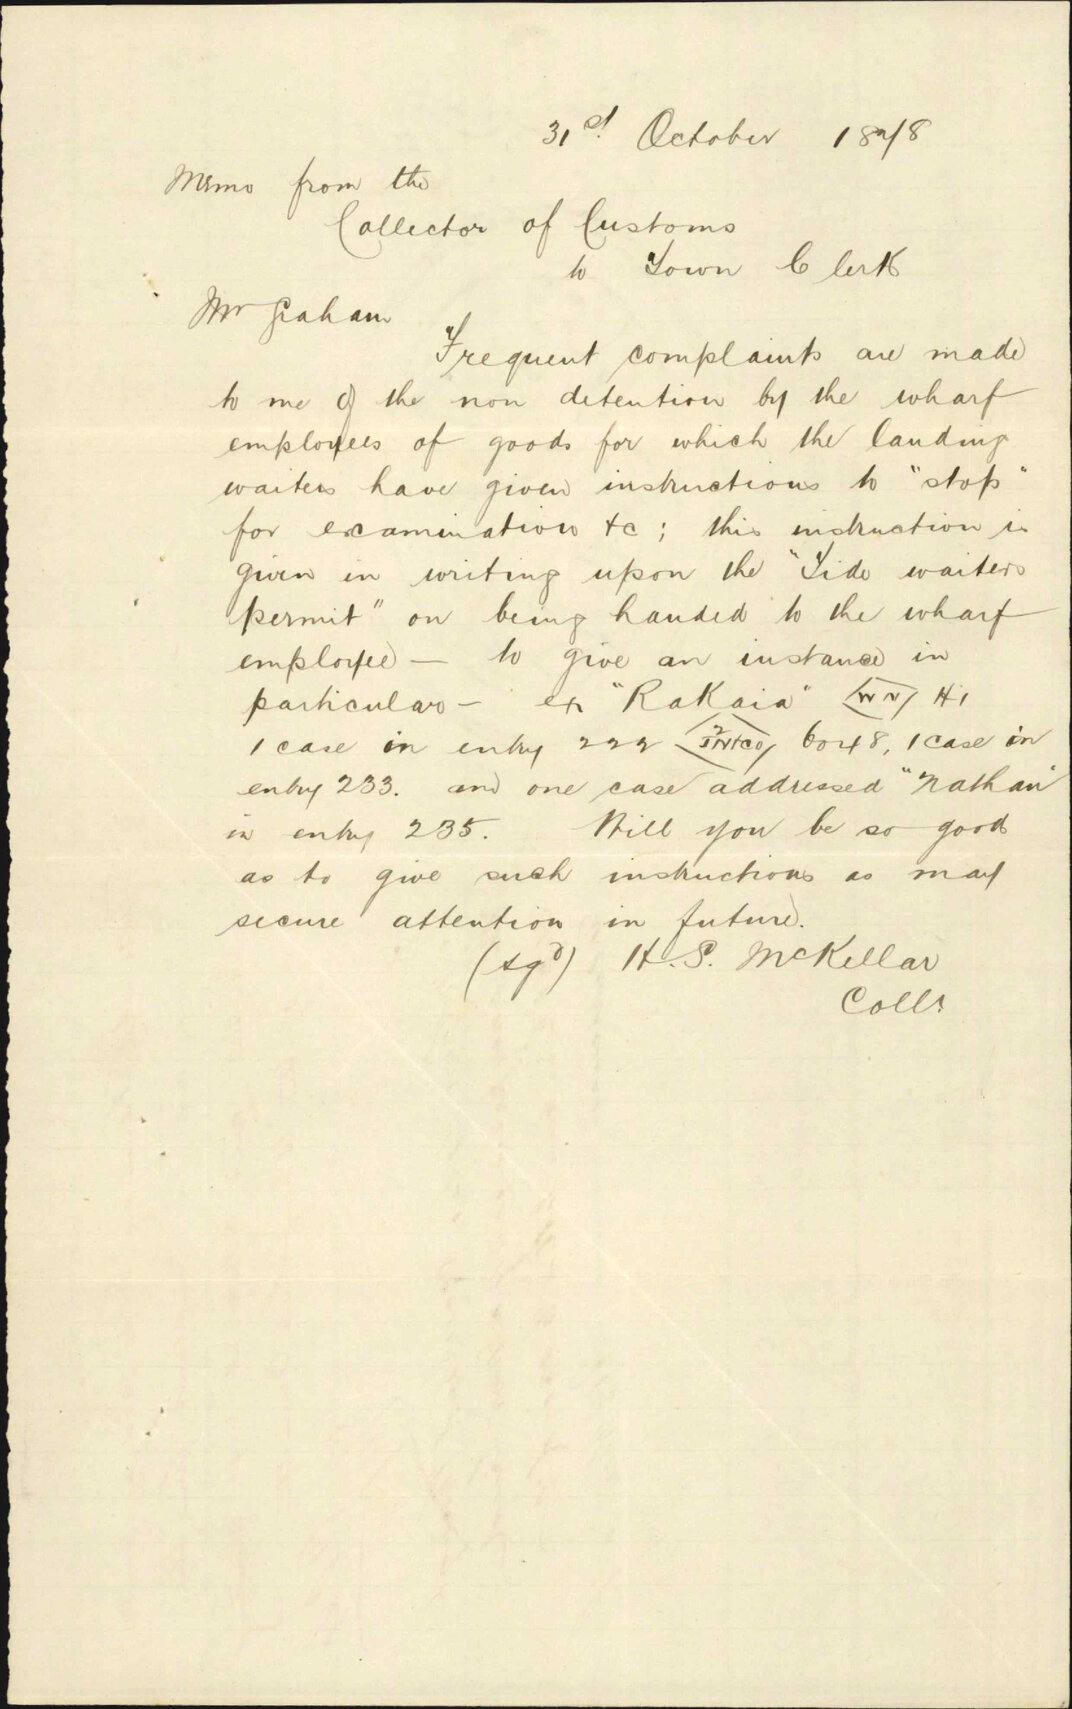 31st October 1878
Memo from the
Collector of Customs
to Town Clerk
Mr Graham
Frequent complaints are made
to me of the non detention by the wharf
employees of goods for which the landing
waiters have given instructions to "stop"
for examination &c; this instruction is
given in writing upon the "Tide waiters
permit" on being handed to the wharf
employee — to give an instance in
particular — ex "Rakaia" WN H1
1 case in entry 222 2 JN&Co 6048, 1 case in
entry 233. and one case addressed "Nathan"
in entry 235. Will you be so good
as to give such instructions as may
secure attention in future.
(sgd) H. S. McKellar
Collr